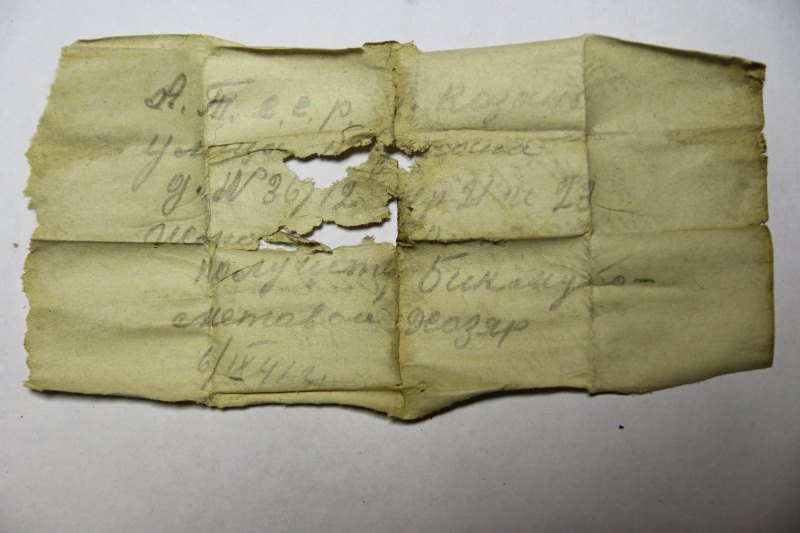 А.Т.с.с.р. г. Казань
улица
д. №36/12 кр 21 и 23
получить Бикмухо-
метовой Хозяр
6/IX 41 г.